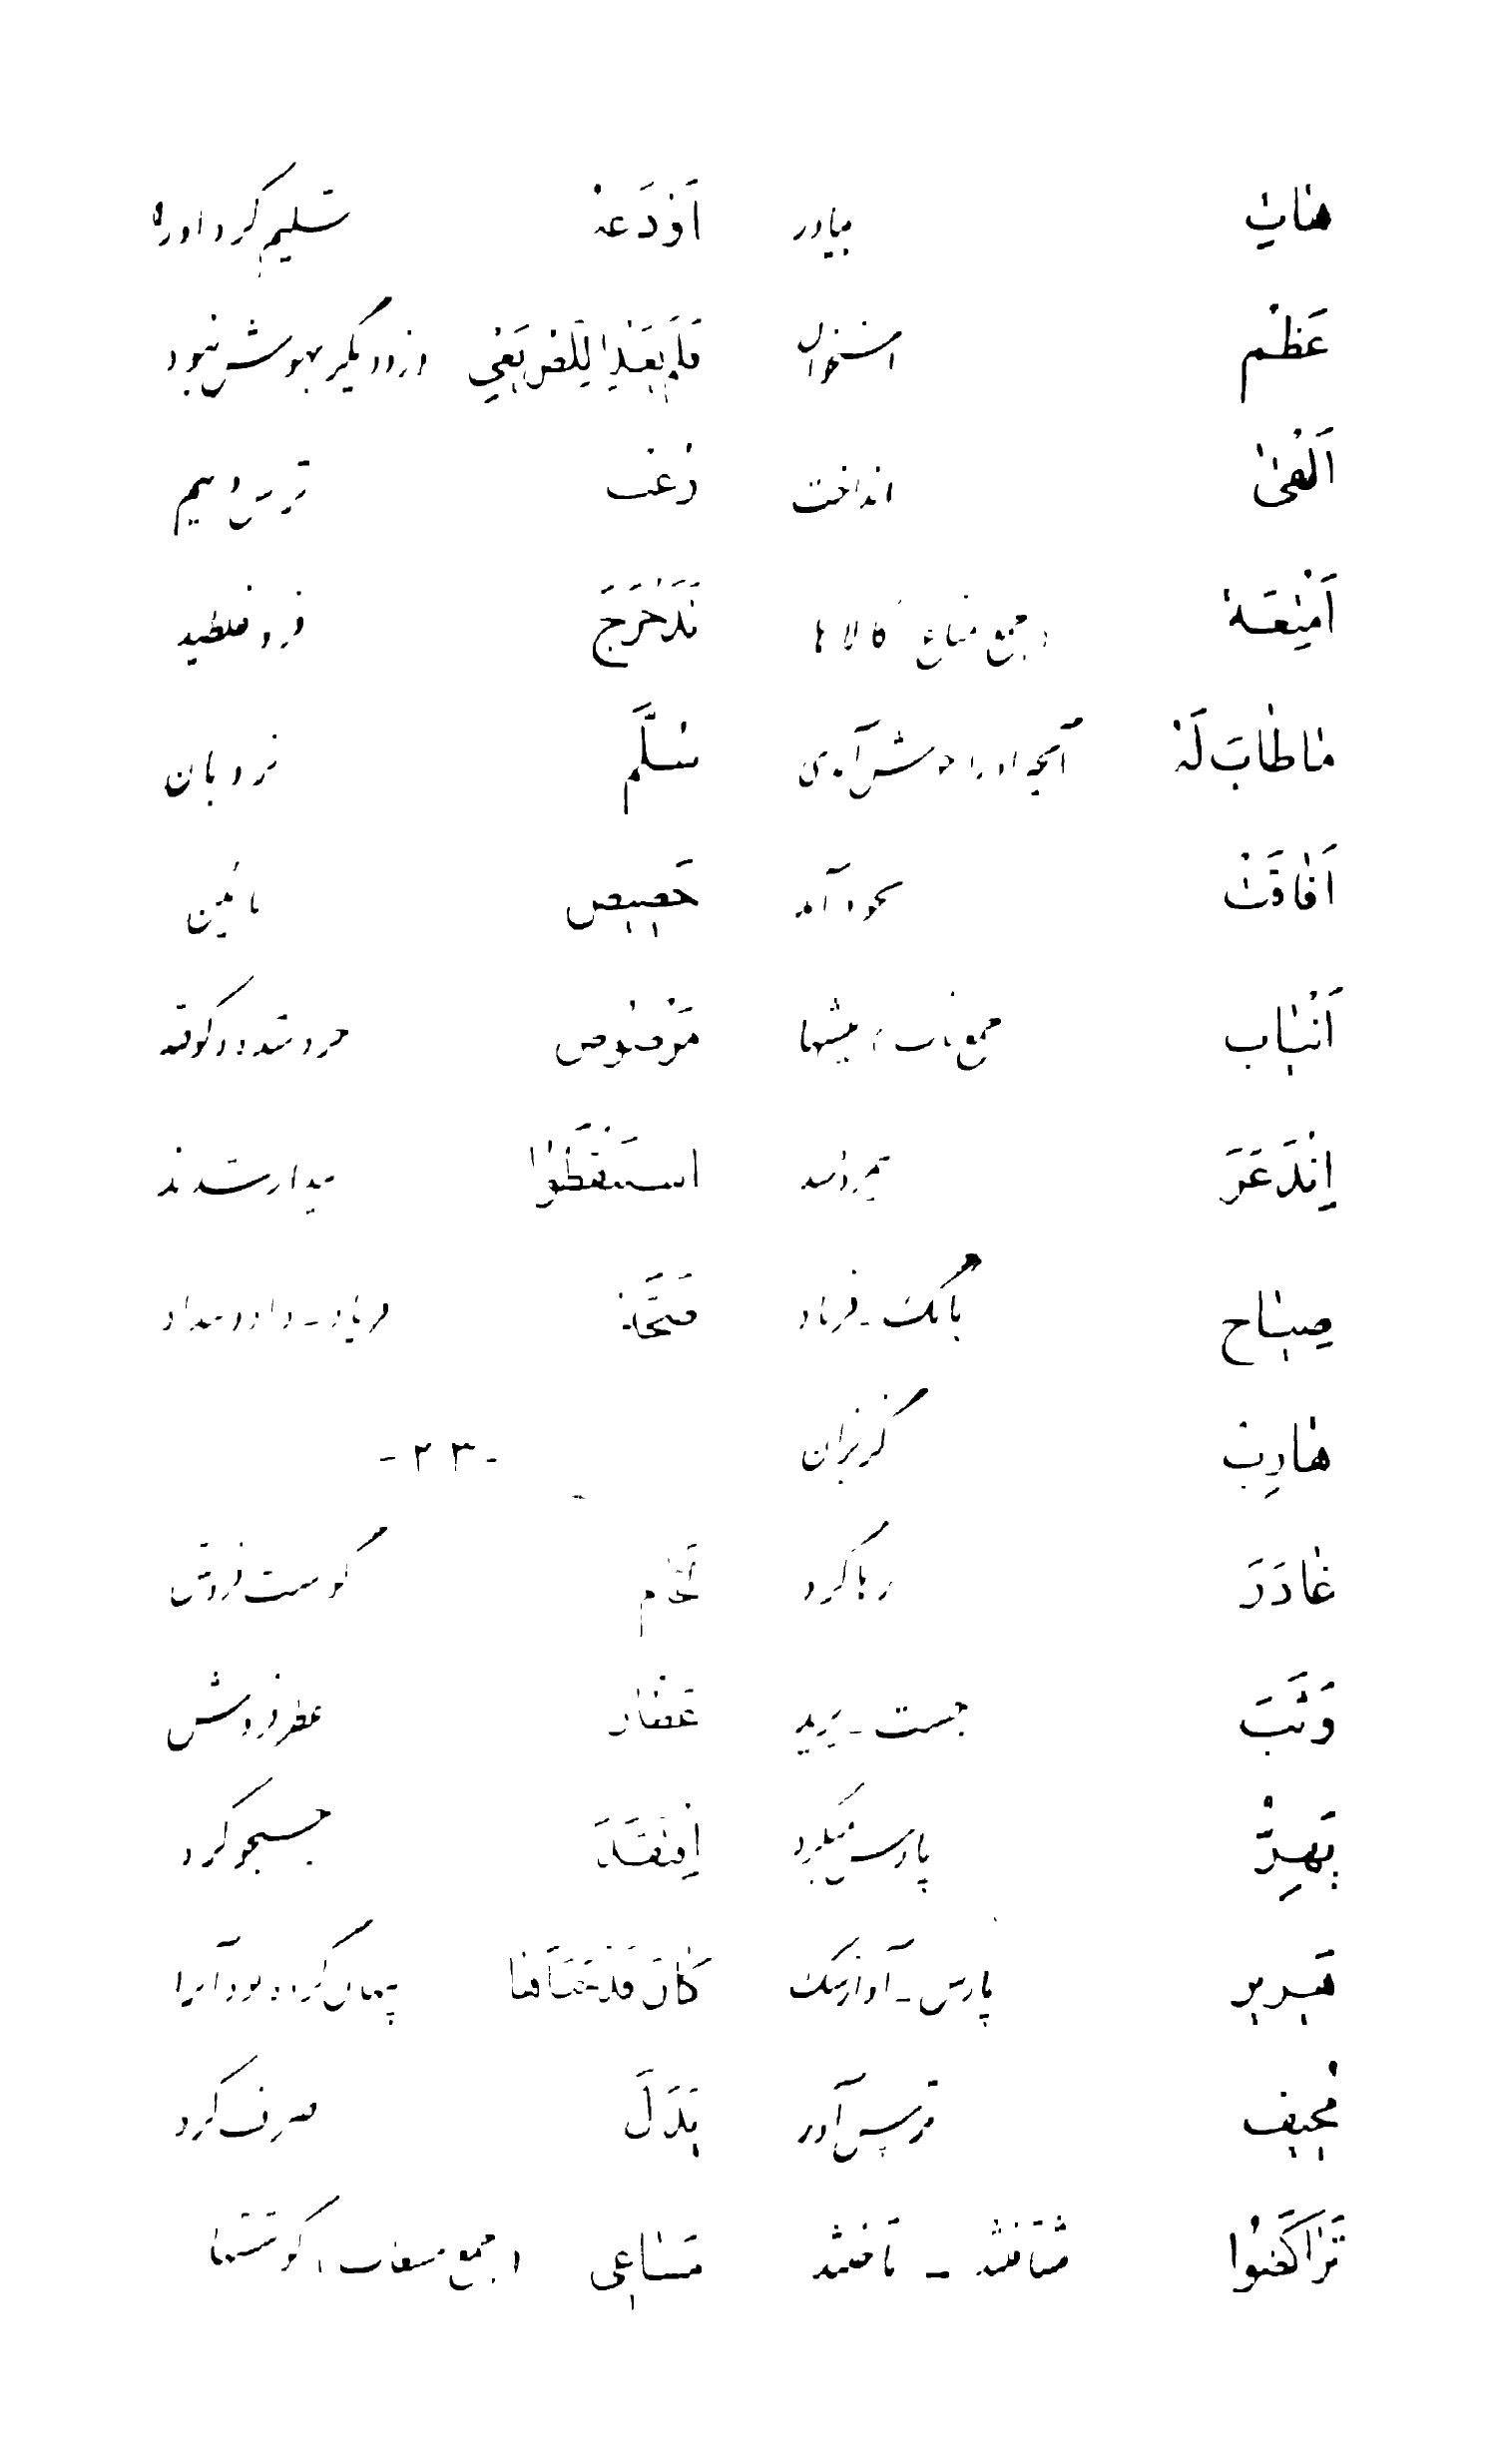 هاتِ بیاور اَوْدَعَهُ تسلیم کرد اورا
عَظْم استخوان فَلَمْ یَعُدْ از دزد دیگر بیهوش نبود
اَلْقیٰ انداخت رُعْب ترس و بیم
اَمْتِعَة (جمع متاع) کالاها تَدَحْرَجَ فرو غلطید
ماطابَ لَهُ آنچه اورا خوش آمدی سُلَّم نردبان
اَفاقَتْ بخود آمد حَضیض پائین
اَنْیاب جمع ناب، نیشها مَرْضُوض خرد شده و کوفته
اِنْذَعَرَ اسْتَیْقَظُوا بیدار شدند
صیاح بانگ - فریاد ضَجَّة فریاد - داد و بیداد
هارِب گریزان
-۲۳-
غادَرَ رها کرد لَحّام گوشت فروش
وَثَبَ جست - پرید عَطّار عطر فروش
یَهِرُّ پارس میکرد اِفْتَقَدَ جستجو کرد
هَریر پارس - آواز سگ کانَ قَدْ خَبَّأَها پنهان کرده بود آنرا
مُخیف ترس آور بَذَلَ صرف کرد
تَراکَضُوا شتافتند - تاختند مَساعی (جمع مسعاة) کوششها